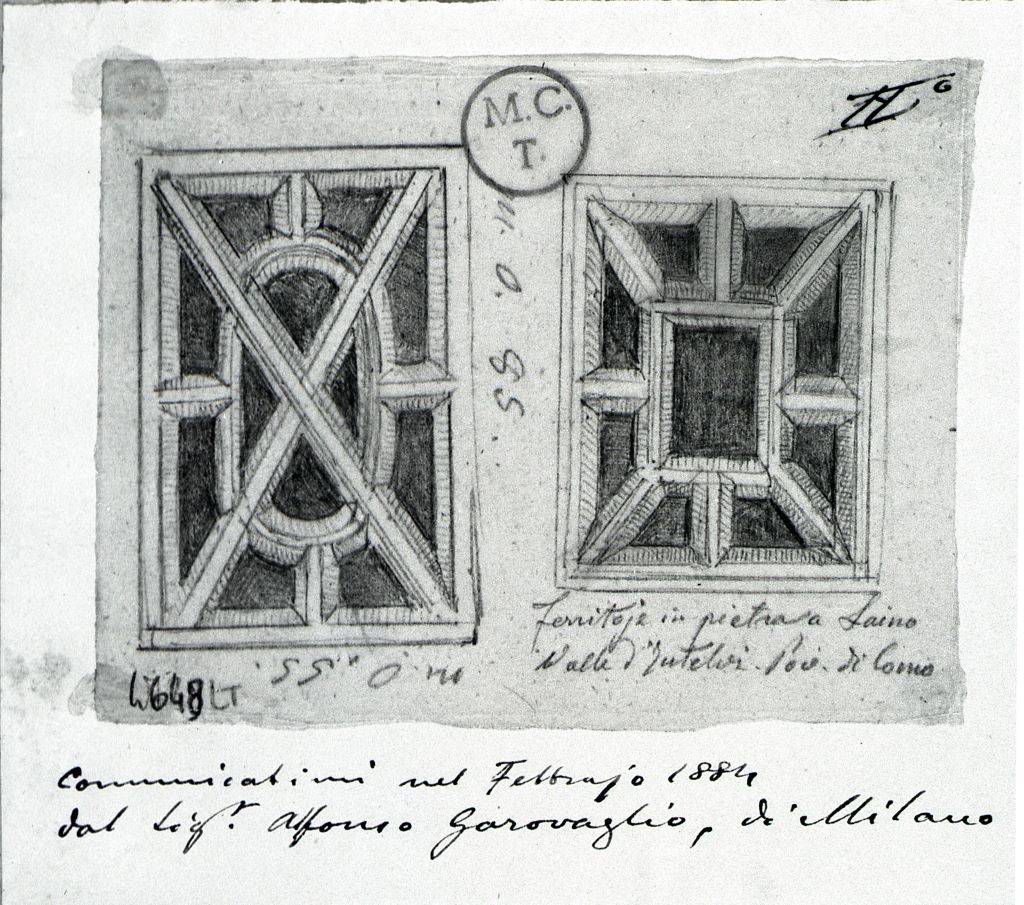 M.C.
T.
6
m. 0. 85.
Feritoje in pietra a Laino
Valle d'Intelvi. Pov. di Como
m. 0,,55.
4648 LT
Comunicatimi nel Febbrajo 1884
dal Sigr. Alfonso Garovaglio, di Milano